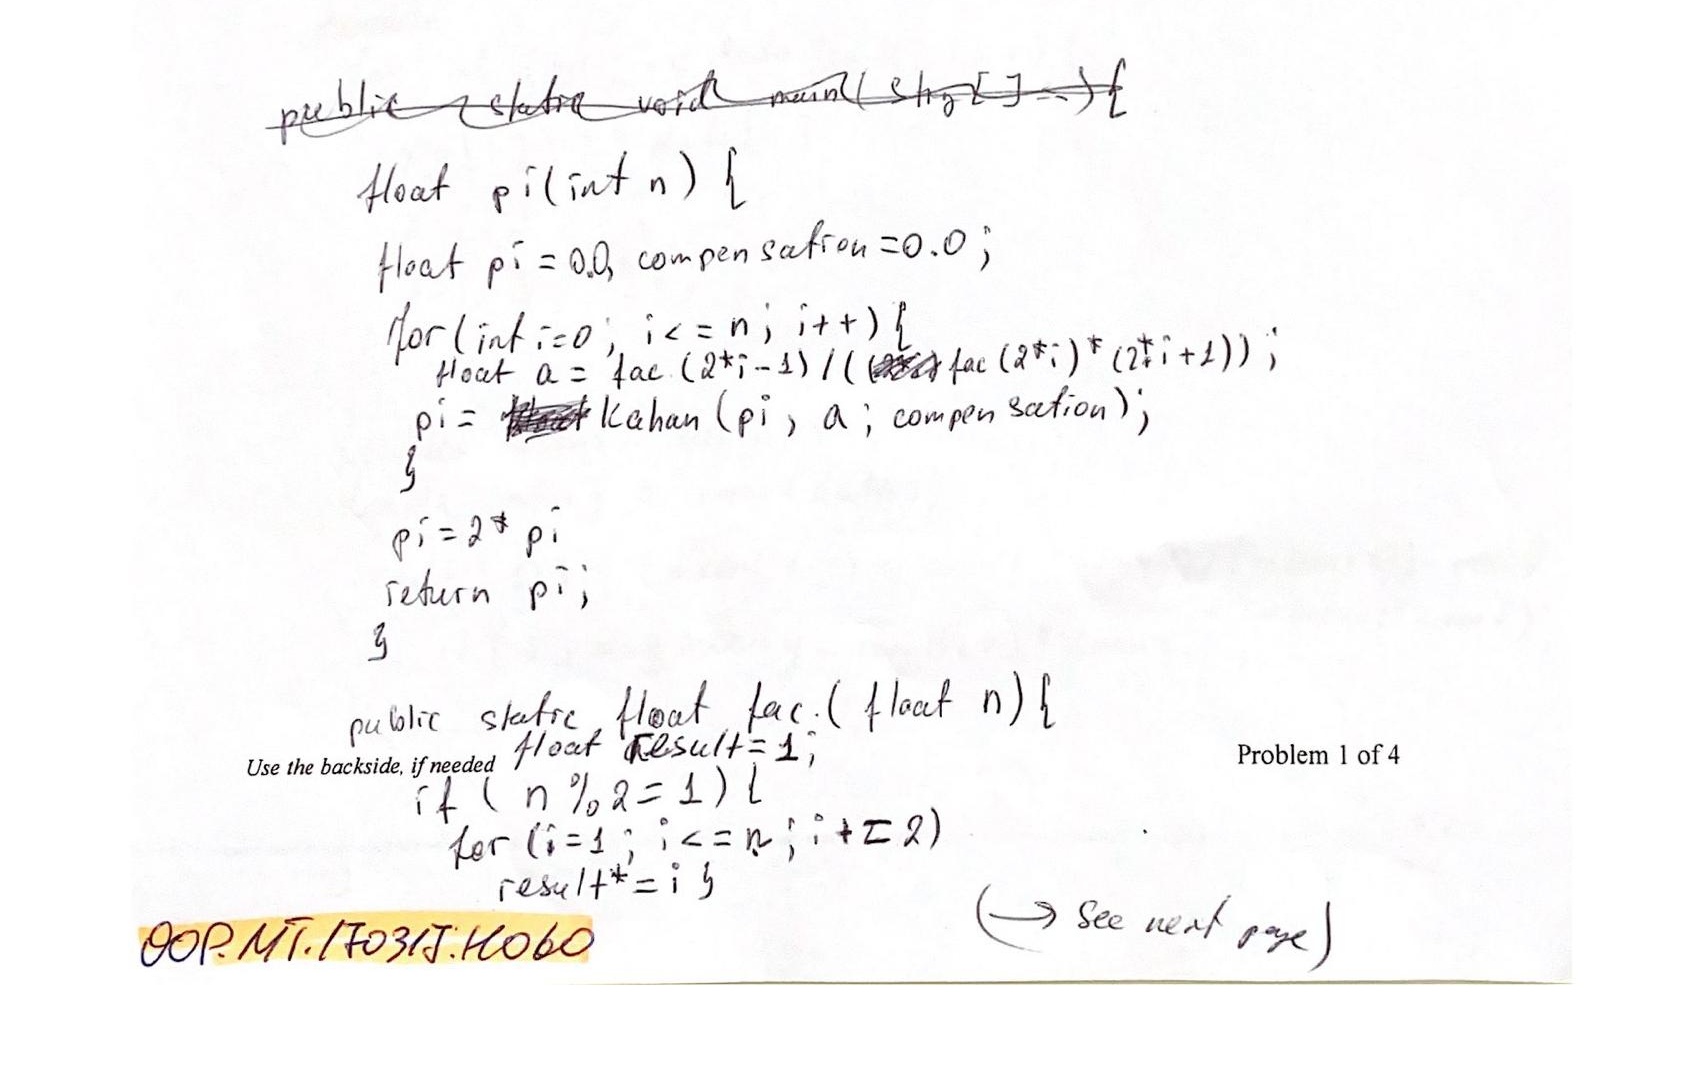 public static void main(String[]...){
float pi(int n) {
float pi = 0.0, compensation = 0.0;
for(int i=0; i<=n; i++) {
float a = fac.(2*i-1)/(( fac(2*i)*(2*i+1));
pi = Kahan(pi, a; compensation);
}
pi = 2* pi
return pi;
}
public static float fac.( float n) {
float result = 1;
Use the backside, if needed
Problem 1 of 4
if ( n % 2 = 1) {
for (i=1; i<=n; i+=2)
result*=i }
(→ see next page)
OOP.MT.17031J.H060